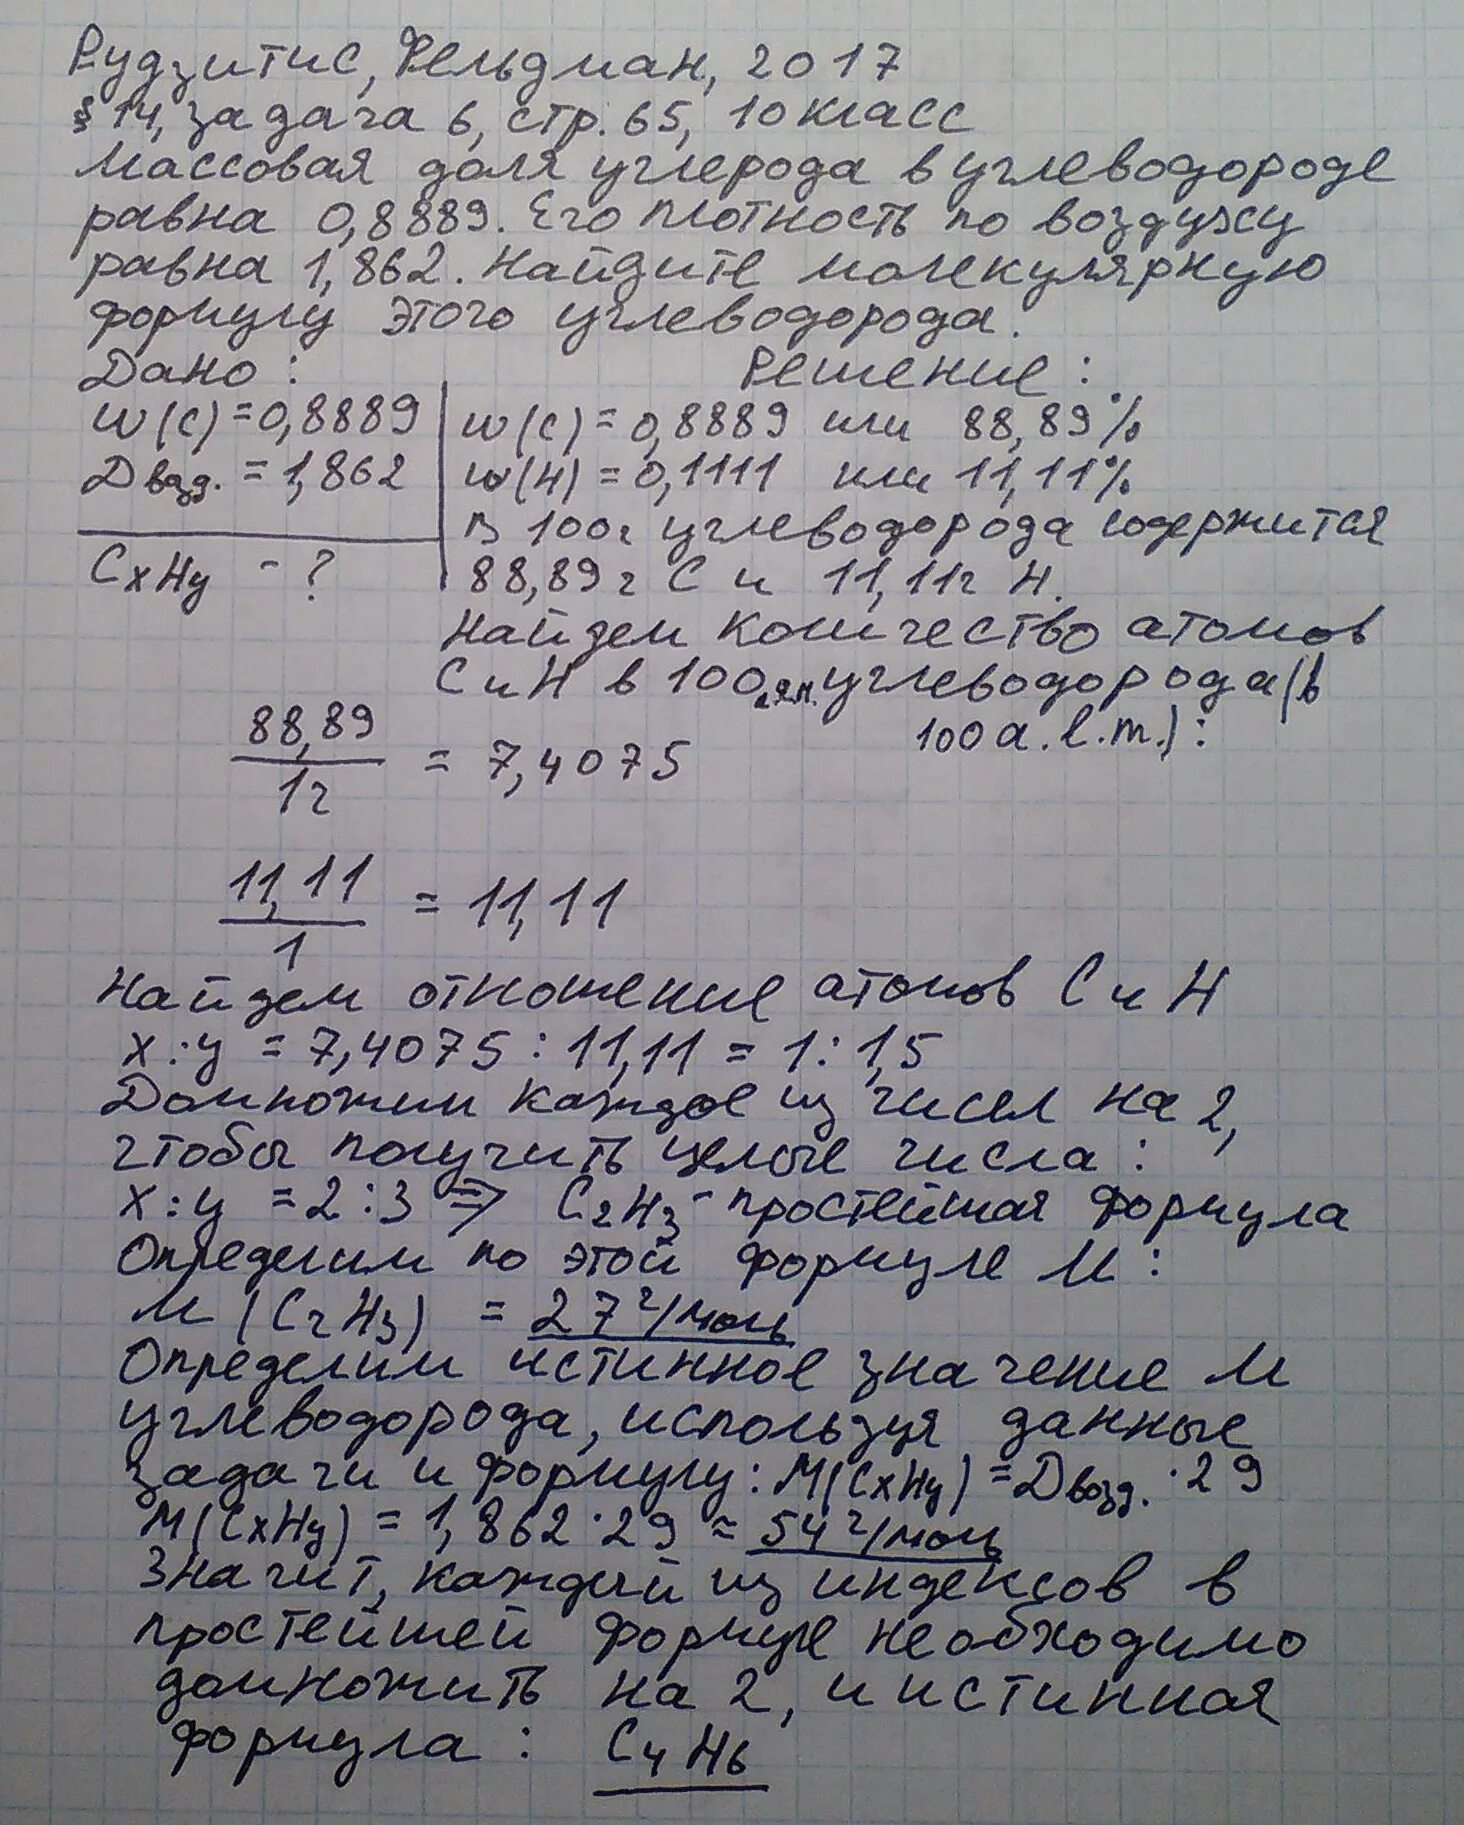 Рудзитис, Фельдман, 2017
§ 14, задача 6, стр. 65, 10 класс
Массовая доля углерода в углеводороде
равна 0,8889. Его плотность по воздуху
равна 1,862. Найдите молекулярную
формулу этого углеводорода.
Дано: Решение:
w(C) = 0,8889 w(C) = 0,8889 или 88,89%
Двозд. = 1,862 w(H) = 0,1111 или 11,11%
В 100г углеводорода содержится
CxHy - ? 88,89 г C и 11,11г H.
Найдем количество атомов
C и H в 100 углеводорода (в
100 а.е.м.):
88,89/12 = 7,4075
11,11/1 = 11,11
Найдем отношение атомов C и H
x:y = 7,4075 : 11,11 = 1 : 1,5
Домножим каждое из чисел на 2,
чтобы получить целые числа:
x:y = 2:3 ⇒ C2H3 - простейшая формула
Определим по этой формуле M:
M (C2H3) = 27 г/моль
Определим истинное значение M
углеводорода, используя данные
задачи и формулу: M(CxHy) = Двозд. · 29
M(CxHy) = 1,862 · 29 ≈ 54 г/моль
Значит, каждый из индексов в
простейшей формуле необходимо
домножить на 2, и истинная
формула: C4H6